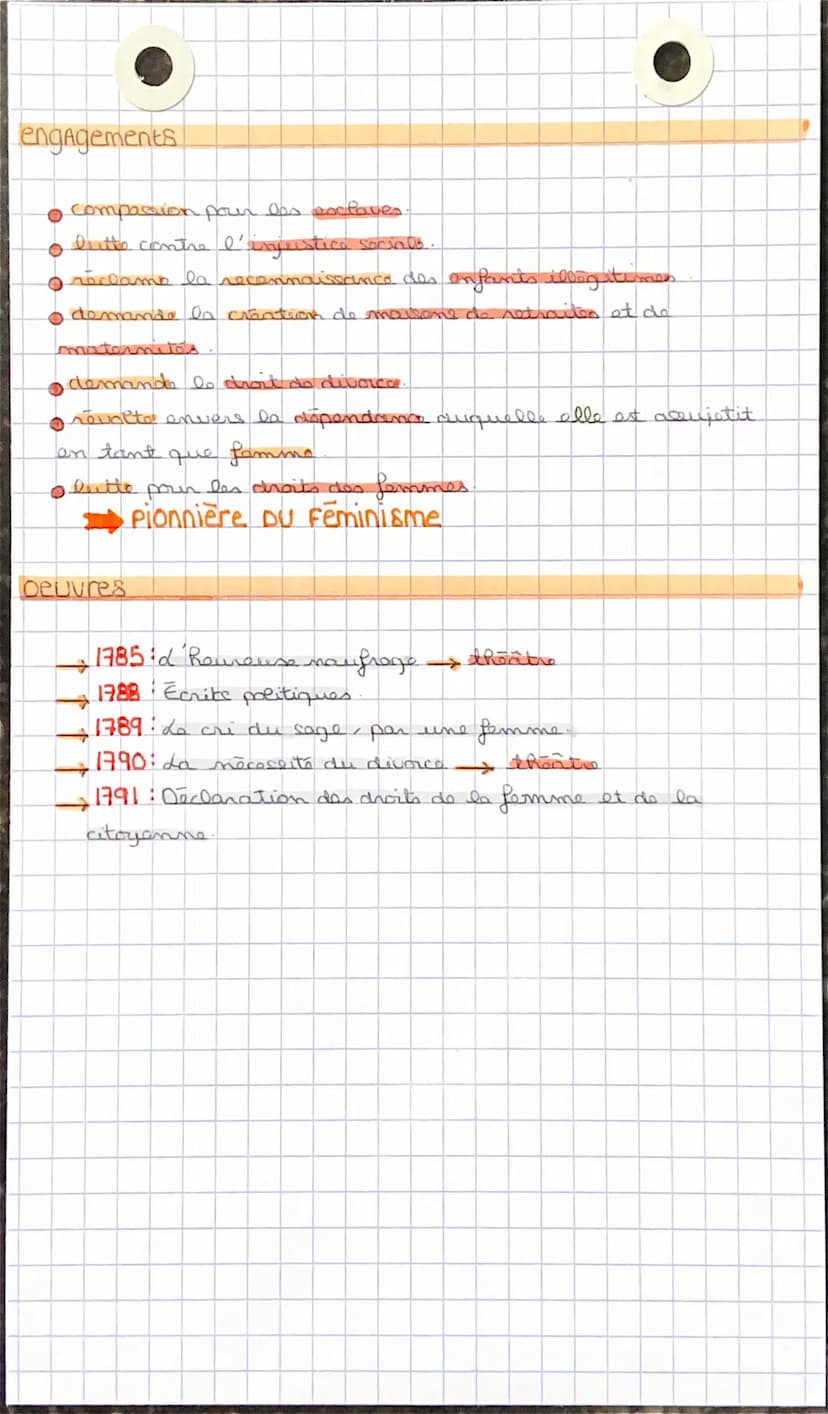 engAgements
compassion pour les esclaves.
lutte contre l'injustice sociale.
réclame la reconnaissance des enfants illégitimes.
demande la création de maisons de retraites et de
maternités.
demande le droit de divorce.
révolte envers la dépendance auquelle elle est assujetit
en tant que femme
lutte pour les droits des femmes
➡ Pionnière DU Féminisme
oeuvres
→ 1785 : d'Heureuse naufrage → théâtre
→ 1788 : Écrits politiques.
→ 1789 : Le cri du sage, par une femme.
→ 1790 : La nécessité du divorce → théâtre
→ 1791 : Déclaration des droits de la femme et de la
citoyenne.